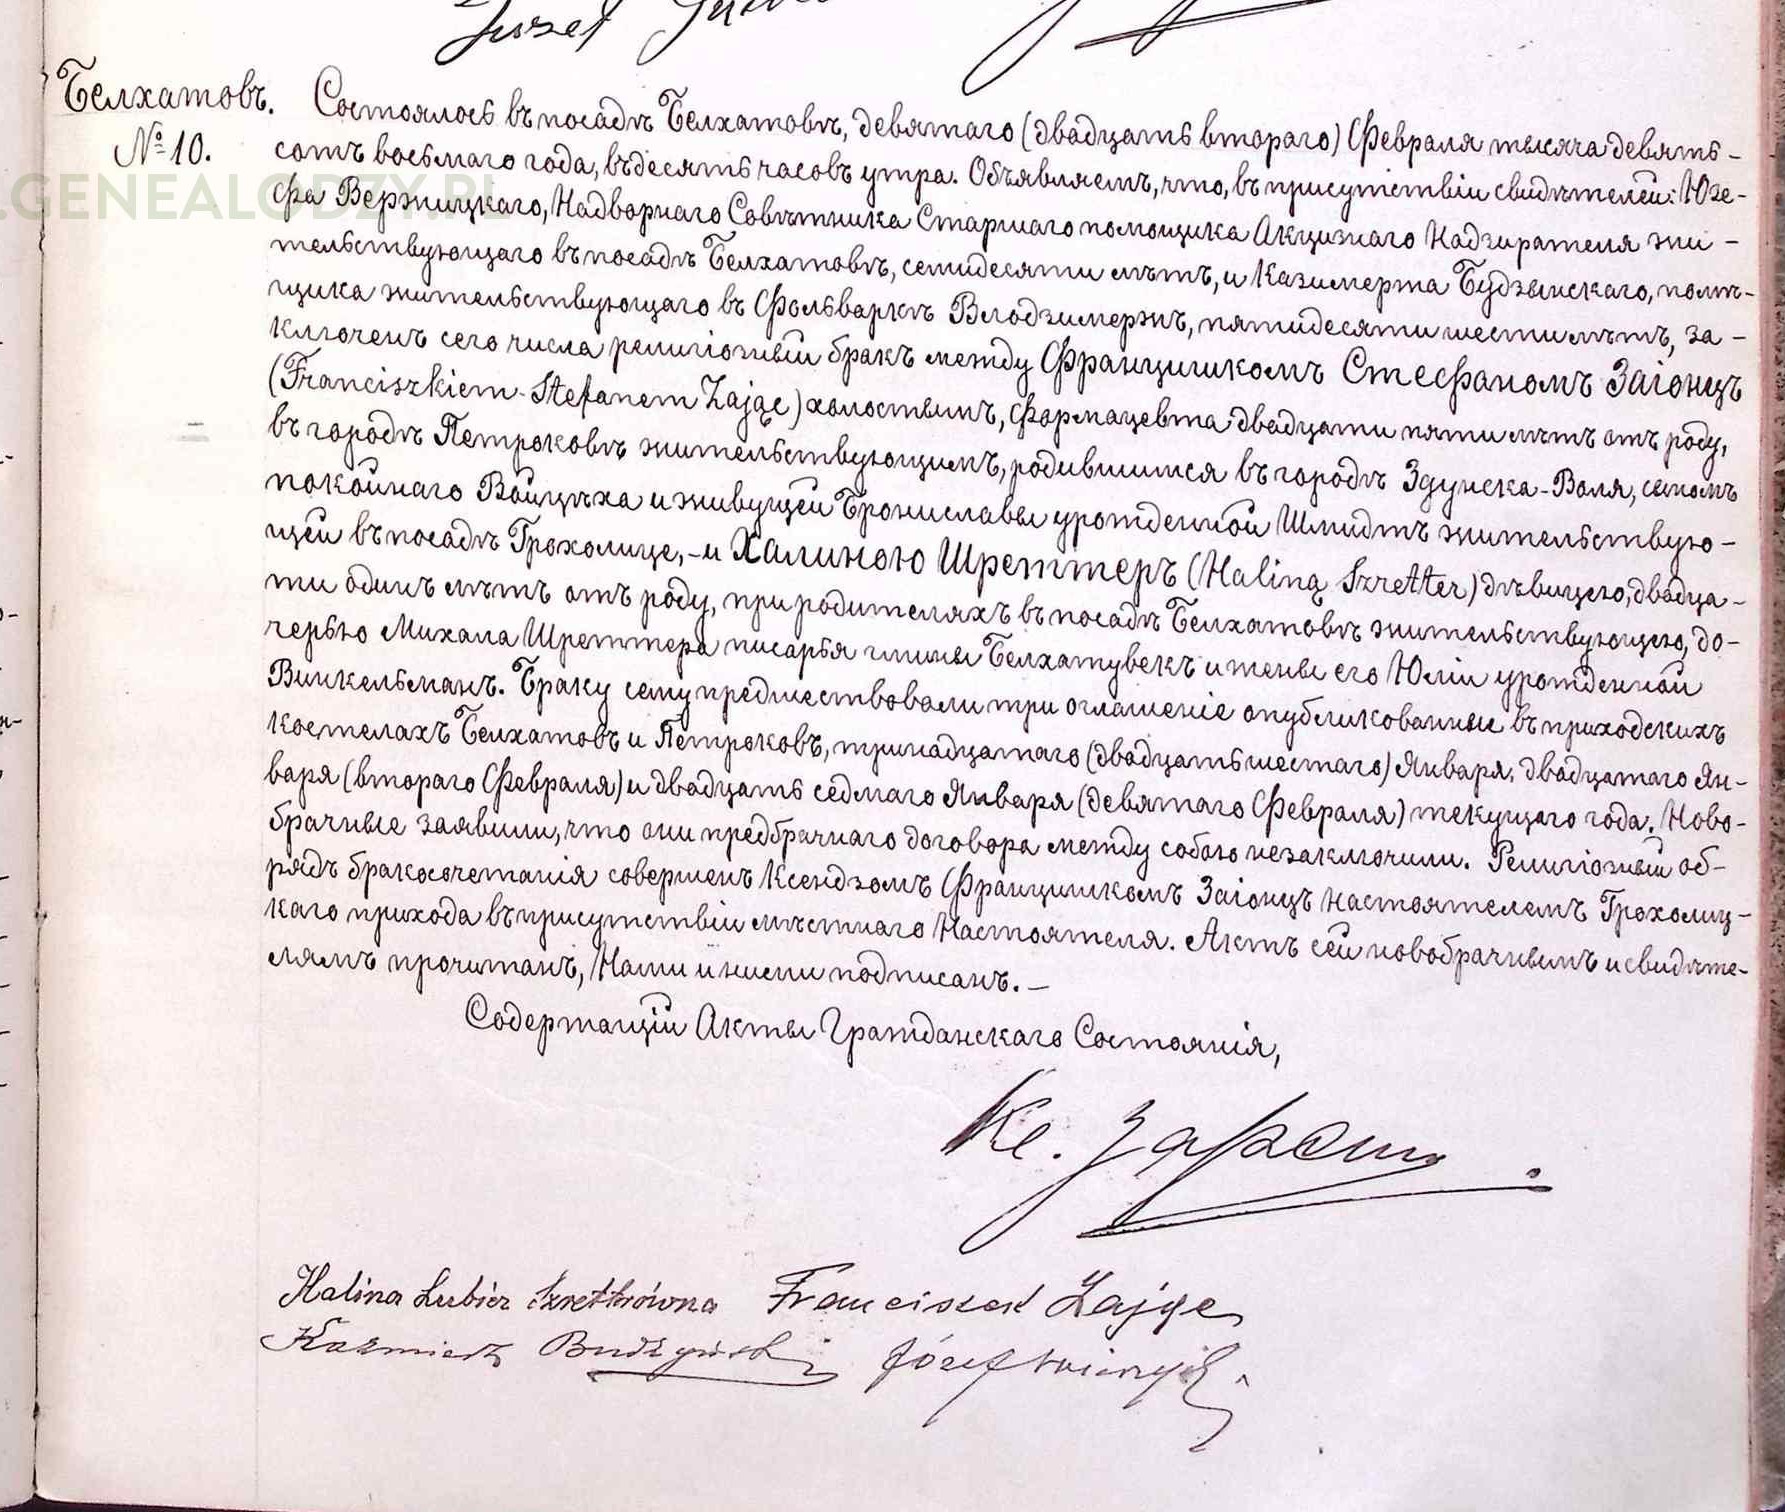 Juzef
Белхатовъ.
№ 10.
.GENEALODZY.PL
Состоялось въ посадѣ Белхатовѣ, девятаго (двадцать втораго) Февраля тысяча девять-
сотъ восьмаго года, въ десять часовъ утра. Объявляемъ, что, въ присутствіи свидѣтелей: Юзе-
фа Вержицкаго, Надворнаго Совѣтника Старшаго помощика Акцизнаго Надзирателя жи-
тельствующаго въ посадѣ Белхатовѣ, семидесяти лѣтъ, и Казимержа Будзынскаго, помѣ-
щика жительствующаго въ Фольваркѣ Влодзимержѣ, пятидесяти шести лѣтъ, за-
ключенъ сего числа религіозный бракъ между Францишкомъ Стефаномъ Заіонцъ
(Franciszkiem Stefanem Zając) холостымъ, фармацевта двадцати пяти лѣтъ отъ роду,
въ городѣ Петроковѣ жительствующимъ, родившимся въ городѣ Здунска-Воля, сыномъ
покойнаго Войцѣха и живущей Брониславы урожденной Шмидтъ жительствую-
щей въ посадѣ Грохолице, - и Халиною Шреттеръ (Haliną Szretter) дѣвицею, двадца-
ти одинъ лѣтъ отъ роду, при родителяхъ въ посадѣ Белхатовѣ жительствующею, до-
черью Михала Шреттера писарья гмины Белхатувекъ и жены его Юліи урожденной
Винкельманъ. Браку сему предшествовали три оглашеніе опубликованные въ приходскихъ
костелахъ Белхатовъ и Петроковъ, тринадцатаго (двадцать шестаго) Января, двадцатаго Ян-
варя (втораго Февраля) и двадцать седмаго Января (девятаго Февраля) текущаго года. Ново-
брачные заявили, что они предбрачнаго договора между собою незаключили. Религіозный об-
рядъ бракосочетанія совершенъ Ксендзомъ Францишкомъ Заіонцъ Настоятелемъ Грохолиц-
каго прихода въ присутствіи мѣстнаго Настоятеля. Актъ сей новобрачнымъ и свидѣте-
лямъ прочитанъ, Нами и ними подписанъ. -
Содержащій Акты Гражданскаго Состоянія,
Кс.
Halina Lubicz Szrettrówna Franciszek Zając
Kazmierz Budzyński Józef